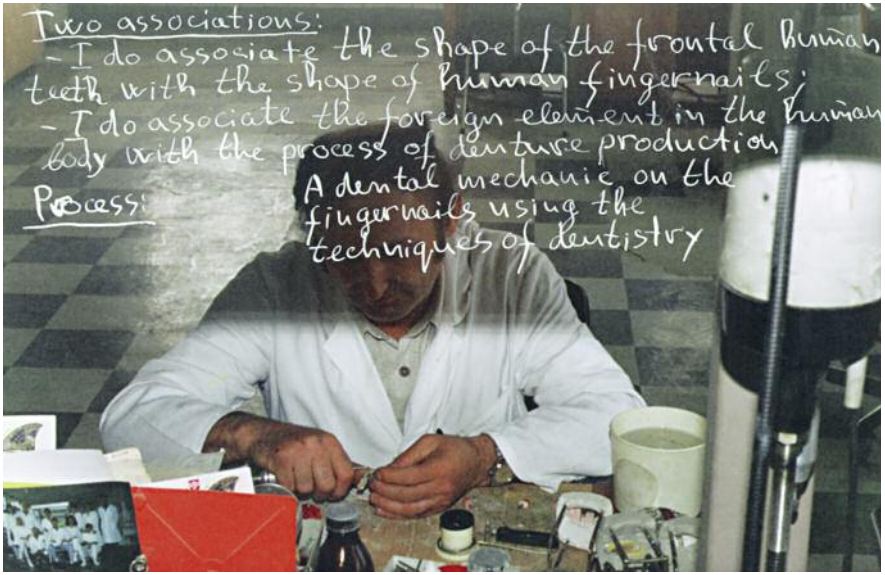 Two associations:
- I do associate the shape of the frontal human
teeth with the shape of human fingernails;
- I do associate the foreign element in the human
body with the process of denture production
Process:
A dental mechanic on the
fingernails using the
techniques of dentistry